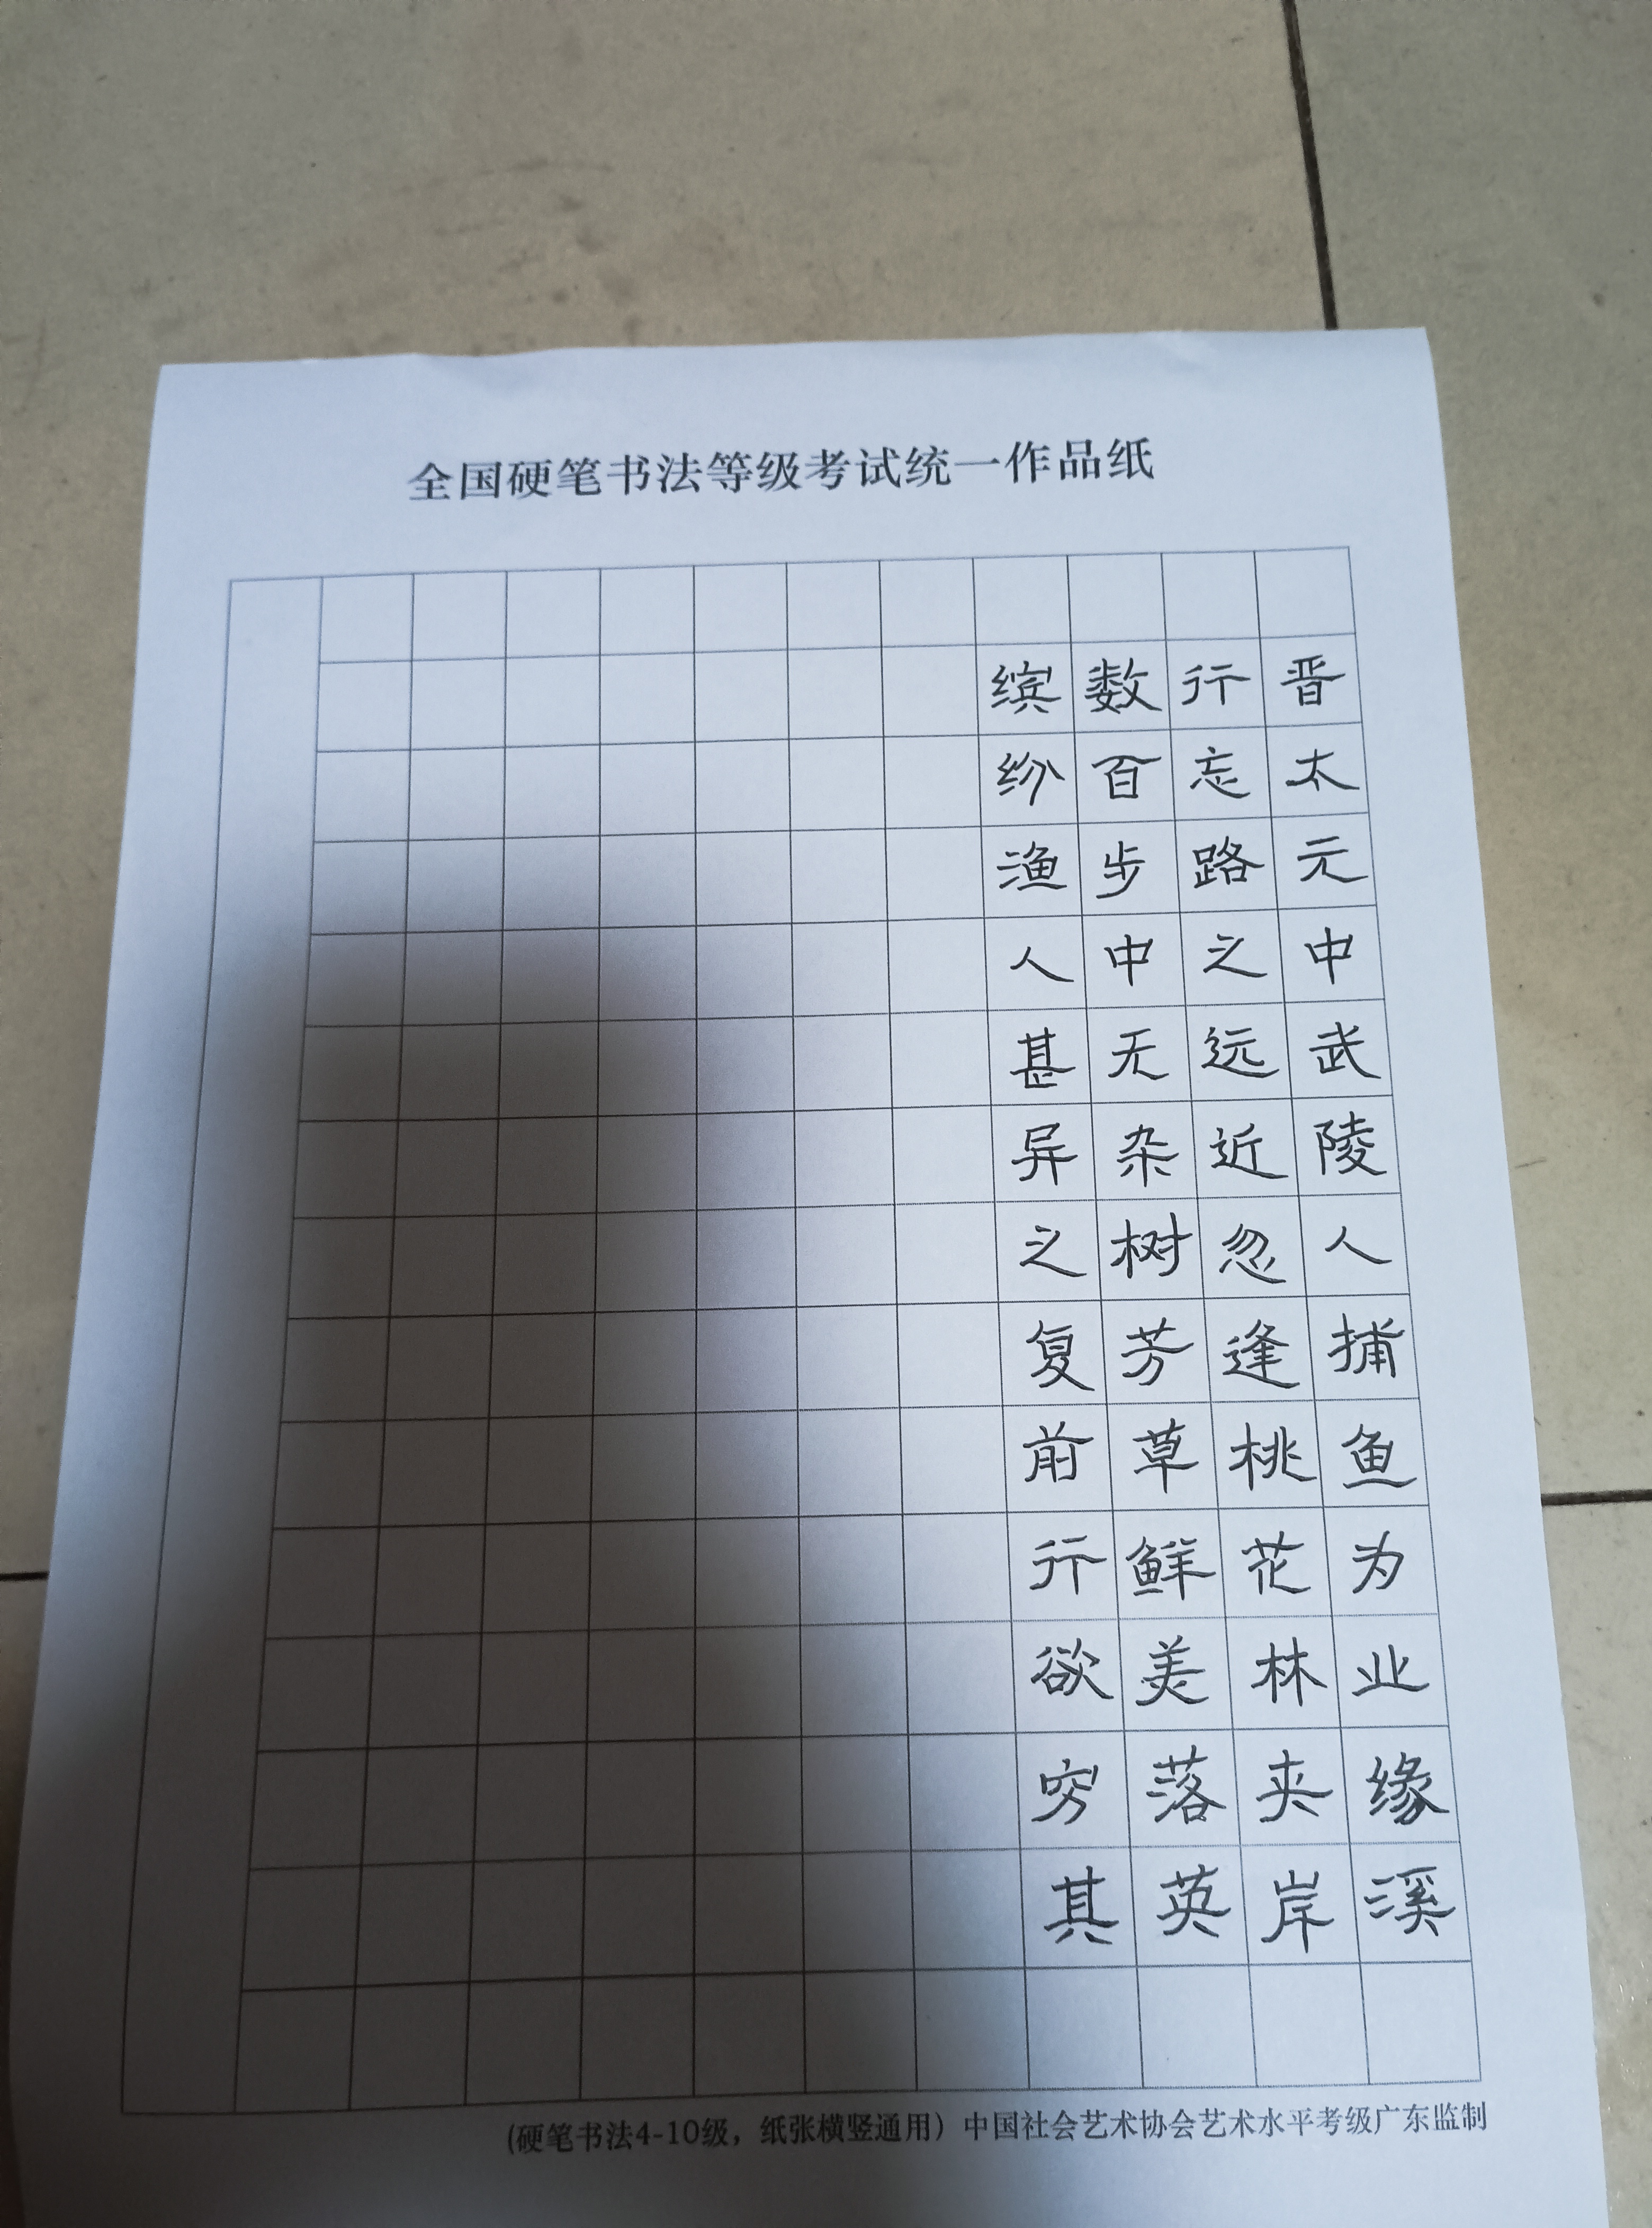 全国硬笔书法等级考试统一作品纸
晋太元中武陵人捕鱼为业缘溪
行忘路之远近忽逢桃花林夹岸
数百步中无杂树芳草鲜美落英
缤纷渔人甚异之复前行欲穷其
(硬笔书法4-10级，纸张横竖通用) 中国社会艺术协会艺术水平考级广东监制